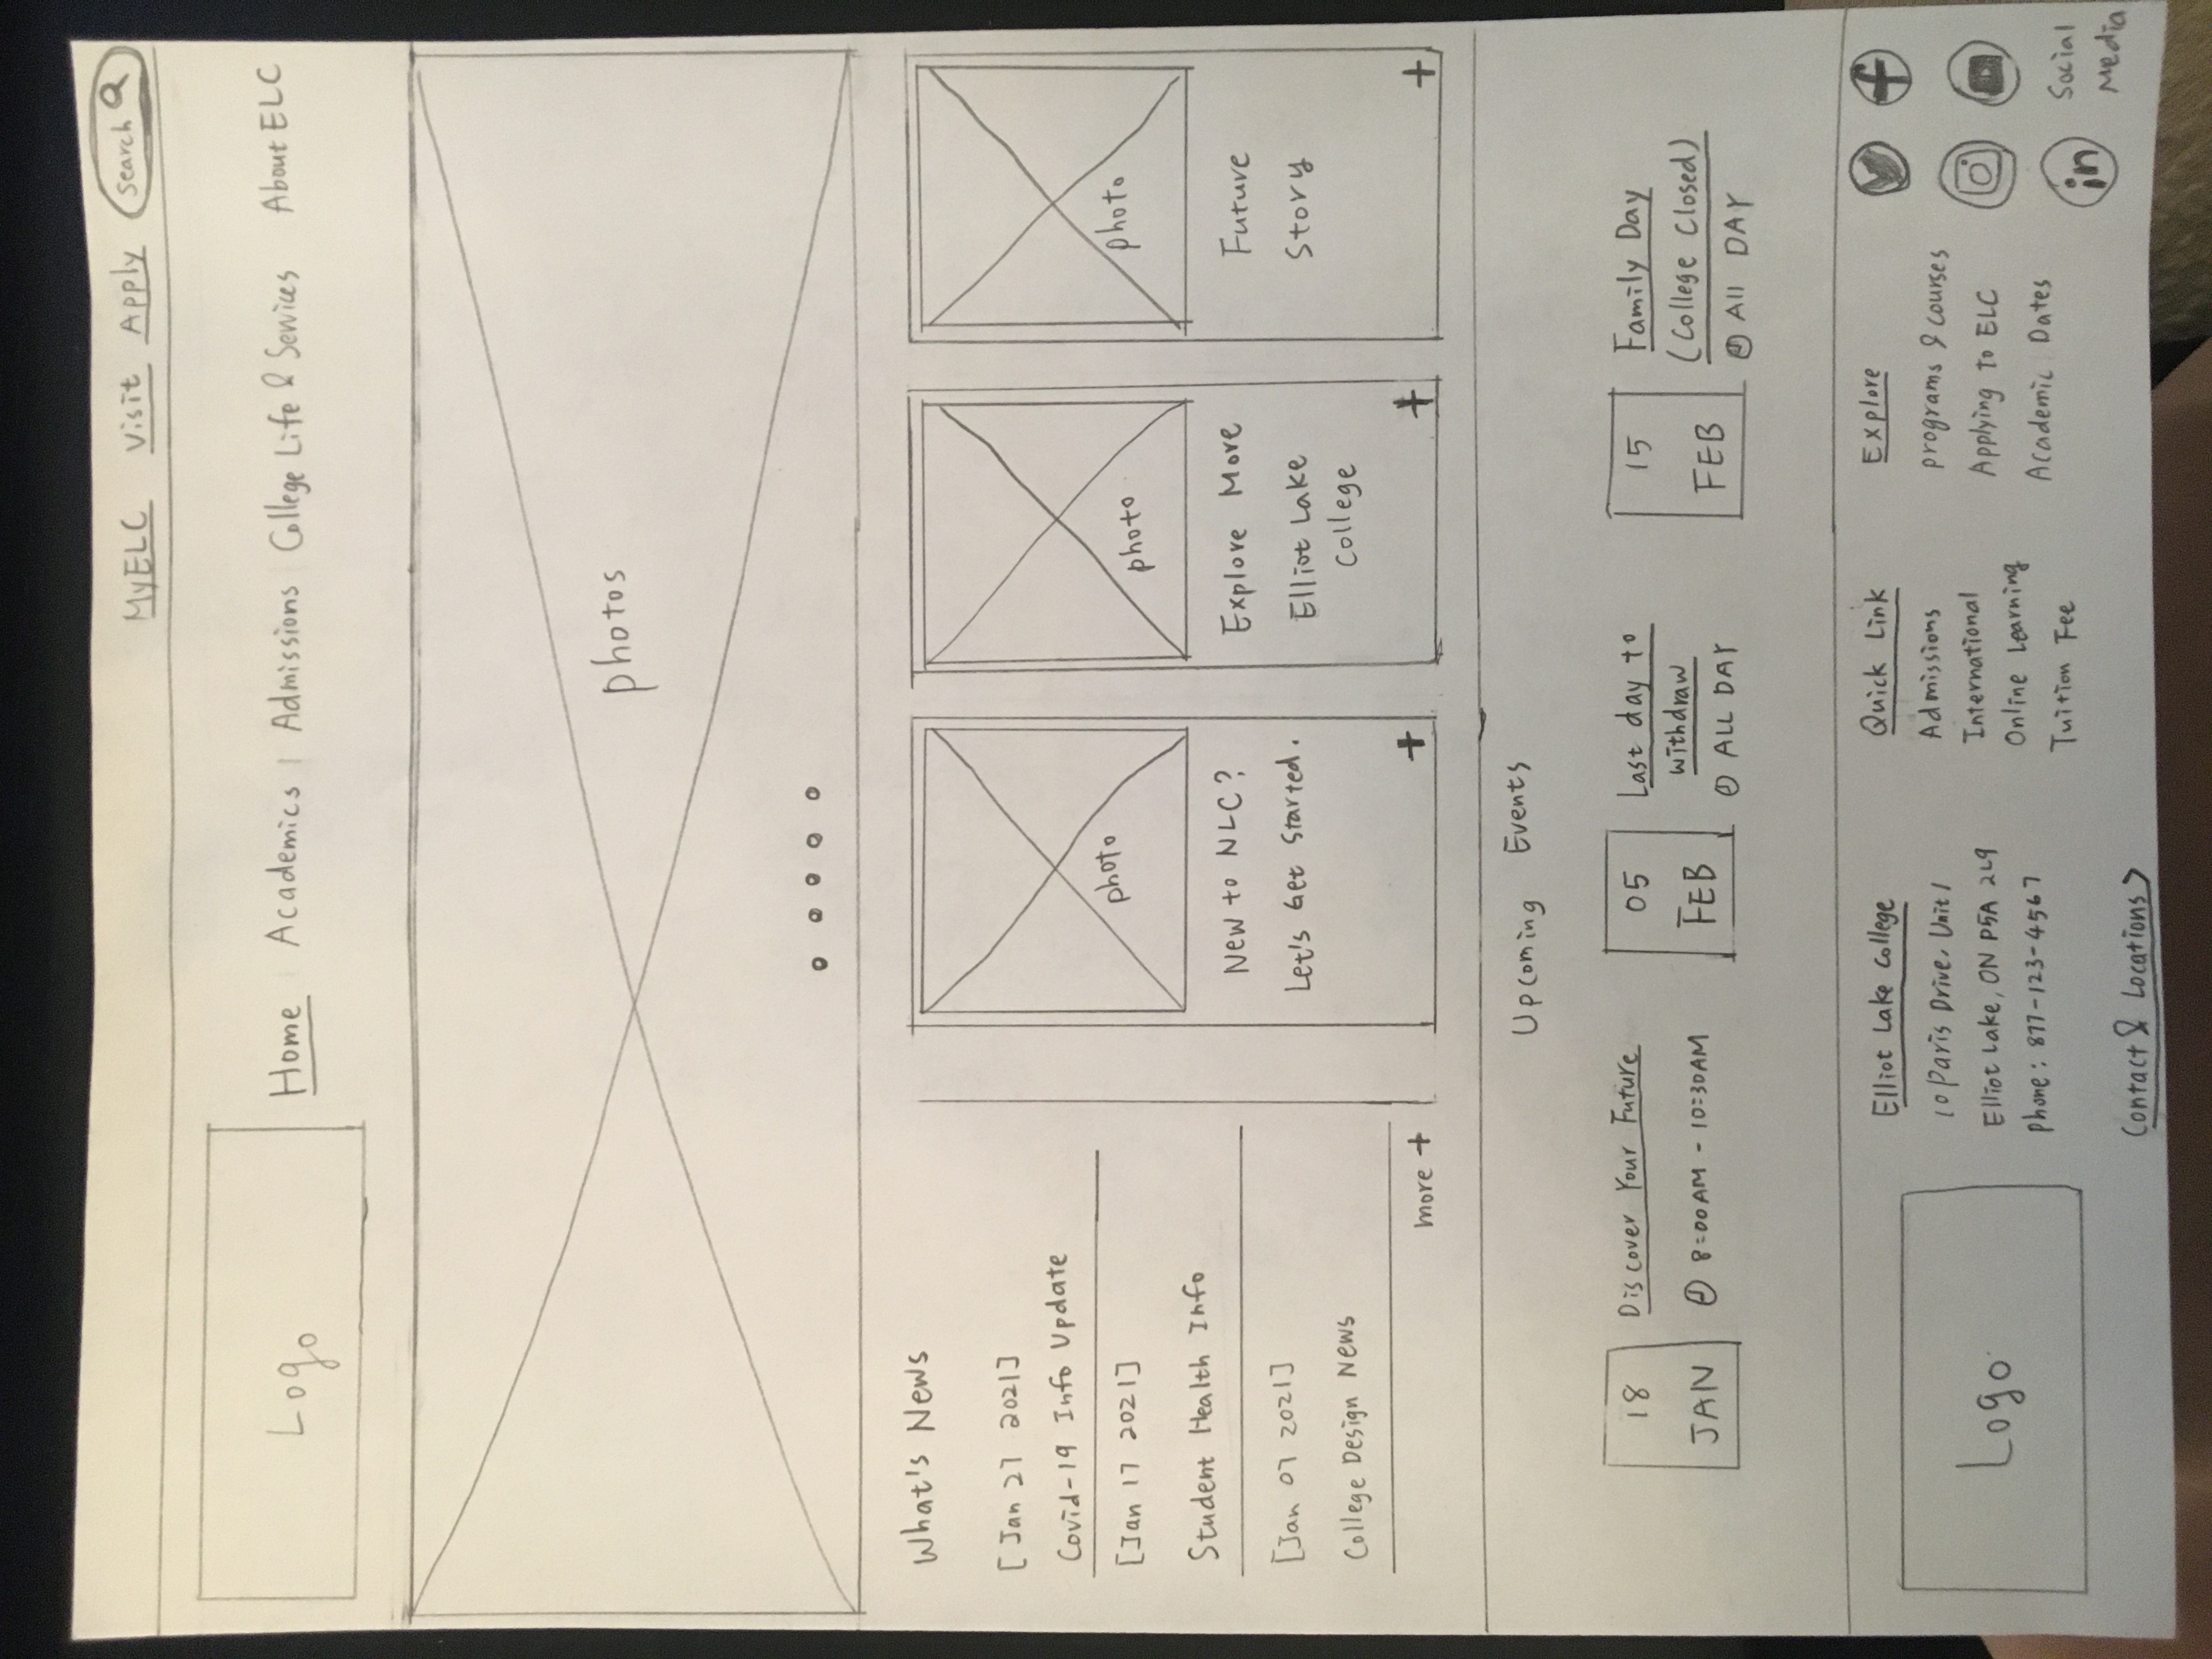 MyELC Visit Apply Search
Logo
Home Academics Admissions College Life & Services About ELC
photos
What's News
[Jan 27 2021]
Covid-19 Info Update
[Jan 17 2021]
Student Health Info
[Jan 07 2021]
College Design News
more +
photo
New to NLC?
Let's Get Started.
+
photo
Explore More
Elliot Lake
College
+
photo
Future
Story
+
Upcoming Events
18
JAN
Discover Your Future
8:00AM - 10:30AM
05
FEB
Last day to
withdraw
ALL DAY
15
FEB
Family Day
(College Closed)
All DAY
Logo
Elliot Lake College
10 Paris Drive, Unit 1
Elliot Lake, ON P5A 2L9
Phone: 877-123-4567
Contact & Locations >
Quick Link
Admissions
International
Online Learning
Tuition Fee
Explore
programs & courses
Applying to ELC
Academic Dates
f
in
Social
Media